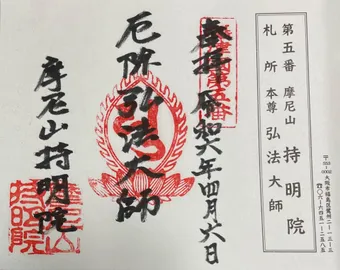 第五番 摩尼山 持明院
札所 本尊 弘法大師
大阪市福島区鷺洲
摂津國第五番
奉拝 令和六年四月六日
厄除弘法大師
摩尼山持明院
摩尼山
持明院